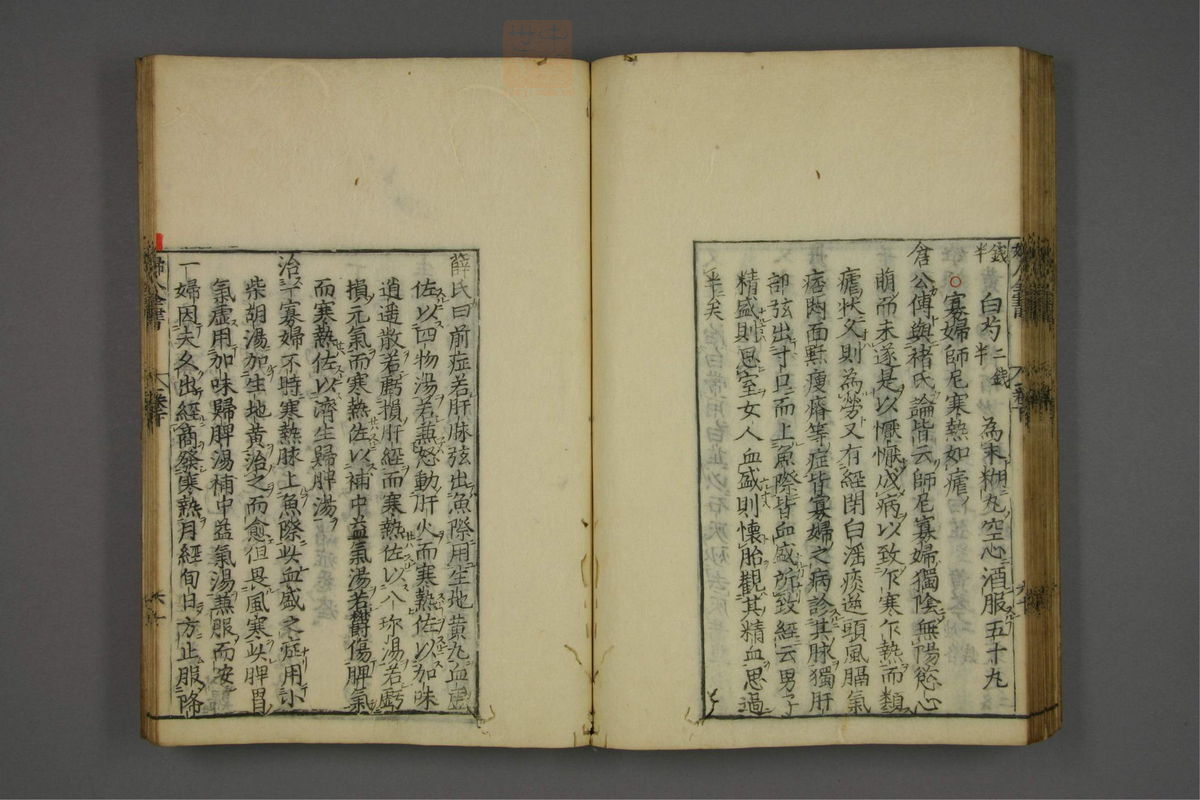 錢半 白芍二錢半 為末糊丸空心酒服五十丸
○寡婦師尼寒熱如瘧
倉公傳與褚氏論皆云師尼寡婦獨陰無陽慾心
萌而未遂是以懨懨成病以致乍寒乍熱而類
瘧狀久則為勞又有經閉白淫痰逆頭風膈氣
痞悶面䵟瘦瘠等症皆寡婦之病診其脉獨肝
部弦出寸口而上魚際皆血盛所致經云男子
精盛則思室女人血盛則懷胎觀其精血思過
半矣
薛氏曰前症若肝脉弦出魚際用生地黃丸血虛
佐以四物湯若兼怒動肝火而寒熱佐以加味
逍遙散若虧損肝經而寒熱佐以八珍湯若虧
損元氣而寒熱佐以補中益氣湯若欝傷脾氣
而寒熱佐以濟生歸脾湯
治一寡婦不時寒熱脉上魚際此血盛之症用小
柴胡湯加生地黃治之而愈但畏風寒此脾胃
氣虛用加味歸脾湯補中益氣湯兼服而安
一婦因夫久出經商發寒熱月經旬日方止服降
婦人全書
卷